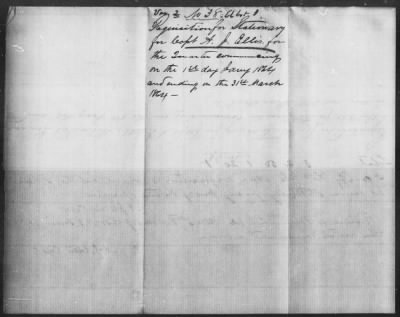 No 38. Abst
Requisition for Stationary
for Capt A. J. Ellis for
the Quarter commencing
on the 1st day Jany 1864
and ending on the 31st March
1864 —